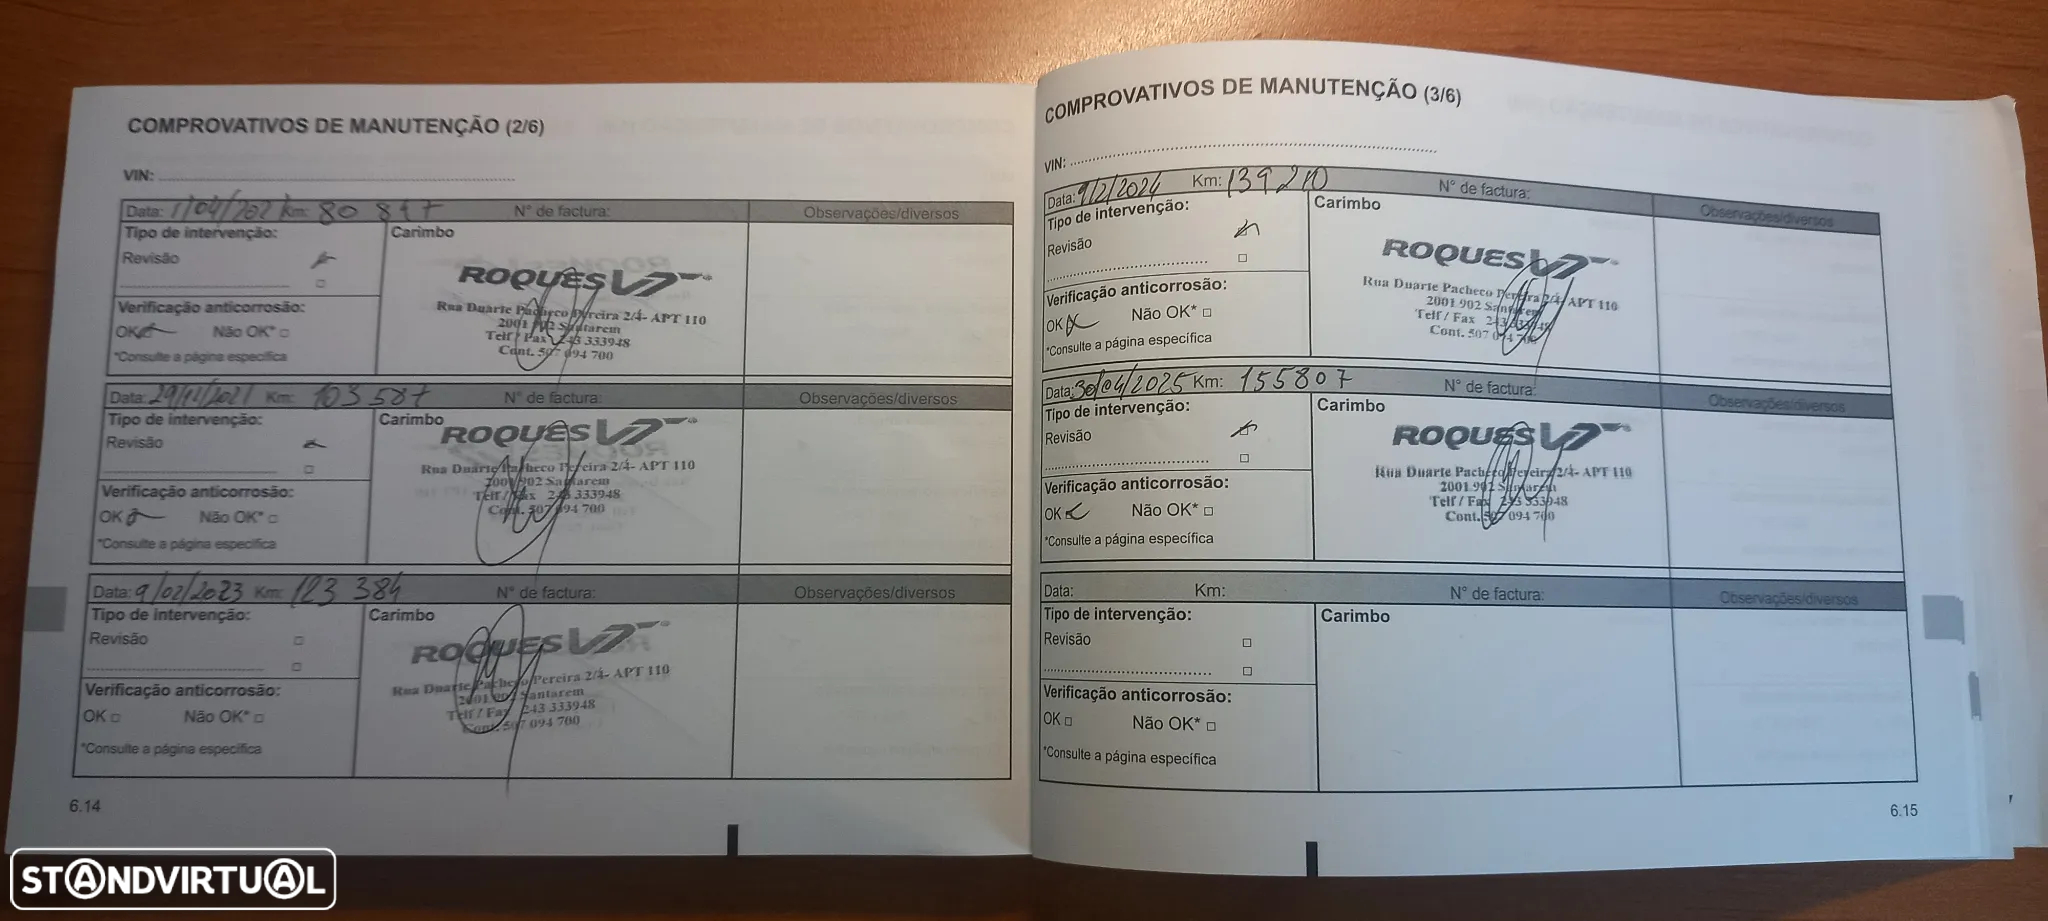 COMPROVATIVOS DE MANUTENÇÃO (2/6)
VIN:
Data: 1/04/2021 Km: 80 847 N° de factura: Observações/diversos
Tipo de intervenção: Carimbo
Revisão
ROQUES VT
Rua Duarte Pacheco Pereira 2/4- APT 110
2001 902 Santarem
Telf / Fax 243 333948
Cont. 507 094 700
Verificação anticorrosão:
OK Não OK*
*Consulte a página específica
Data: 29/11/2021 Km: 103 587 N° de factura: Observações/diversos
Tipo de intervenção: Carimbo
Revisão
ROQUES VT
Rua Duarte Pacheco Pereira 2/4- APT 110
2001 902 Santarem
Telf / Fax 243 333948
Cont. 507 094 700
Verificação anticorrosão:
OK Não OK*
*Consulte a página específica
Data: 9/02/2023 Km: 123 384 N° de factura: Observações/diversos
Tipo de intervenção: Carimbo
Revisão
ROQUES VT
Rua Duarte Pacheco Pereira 2/4- APT 110
2001 902 Santarem
Telf / Fax 243 333948
Cont. 507 094 700
Verificação anticorrosão:
OK Não OK*
*Consulte a página específica
6.14
COMPROVATIVOS DE MANUTENÇÃO (3/6)
VIN:
Data: 9/2/2024 Km: 139210 N° de factura: Observações/diversos
Tipo de intervenção: Carimbo
Revisão
ROQUES VT
Rua Duarte Pacheco Pereira 2/4- APT 110
2001 902 Santarem
Telf / Fax 243 333948
Cont. 507 094 700
Verificação anticorrosão:
OK Não OK*
*Consulte a página específica
Data: 30/04/2025 Km: 155807 N° de factura: Observações/diversos
Tipo de intervenção: Carimbo
Revisão
ROQUES VT
Rua Duarte Pacheco Pereira 2/4- APT 110
2001 902 Santarem
Telf / Fax 243 333948
Cont. 507 094 700
Verificação anticorrosão:
OK Não OK*
*Consulte a página específica
Data: Km: N° de factura: Observações/diversos
Tipo de intervenção: Carimbo
Revisão
Verificação anticorrosão:
OK Não OK*
*Consulte a página específica
6.15
STANDVIRTUAL